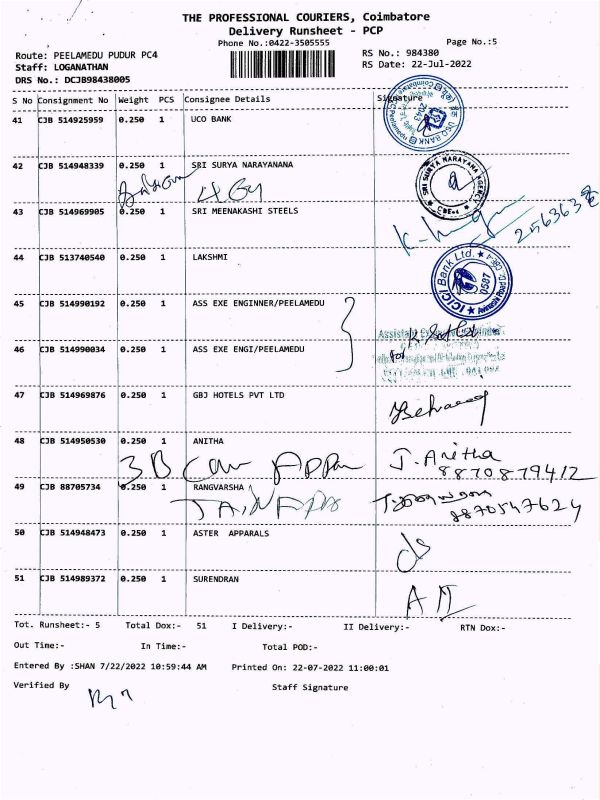 THE PROFESSIONAL COURIERS, Coimbatore
Delivery Runsheet - PCP
Phone No.:0422-3505555
Page No.:5
Route: PEELAMEDU PUDUR PC4
RS No.: 984380
Staff: LOGANATHAN
RS Date: 22-Jul-2022
DRS No.: DCJB98438005
S No Consignment No Weight PCS Consignee Details Signature
41 CJB 514925959 0.250 1 UCO BANK
UCO BANK
42 CJB 514948339 0.250 1 SRI SURYA NARAYANANA
SRI SURYA NARAYANA AGENCY
CBE-4
43 CJB 514969905 0.250 1 SRI MEENAKASHI STEELS
2563636
44 CJB 513740540 0.250 1 LAKSHMI
ICICI Bank Ltd.
0587
45 CJB 514990192 0.250 1 ASS EXE ENGINNER/PEELAMEDU
for
46 CJB 514990034 0.250 1 ASS EXE ENGI/PEELAMEDU
47 CJB 514969876 0.250 1 GBJ HOTELS PVT LTD
48 CJB 514950530 0.250 1 ANITHA
3B
J. Anitha
8870879412
49 CJB 88705734 0.250 1 RANGVARSHA
JAIN
8870547624
50 CJB 514948473 0.250 1 ASTER APPARALS
51 CJB 514989372 0.250 1 SURENDRAN
Tot. Runsheet:- 5 Total Dox:- 51 I Delivery:- II Delivery:- RTN Dox:-
Out Time:- In Time:- Total POD:-
Entered By :SHAN 7/22/2022 10:59:44 AM Printed On: 22-07-2022 11:00:01
Verified By Staff Signature